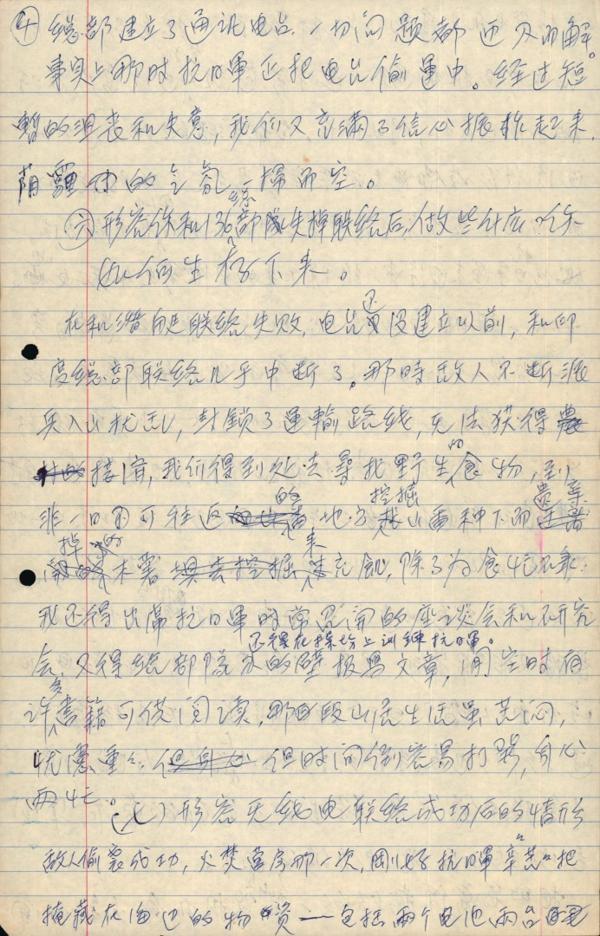 ④ 总部建立了通讯电台.一切问题都迎刃而解。
事实上那时抗日軍正把电台偷運中。经过短
暫的沮丧和失意,我们又充满了信心振拃起来.
阴霾的气氛一掃而空。
㈥形容你和136总部隊失掉联络后,做些什么,你
如何生存下来。
在和潜艇联络失败,电台还没建立以前,和印
度总部联络几乎中断了。那時敌人不断派
兵入山扰乱,封鎖了運輸路线,无法获得
接濟,我们得到处去尋找野生的食物,到
非一日不可往返的地方挖掘山番种下而遗棄
掉的木薯来充飢,除了为食忙碌
我还得出席抗日軍時常召开的座谈会和研究
会,还得在操场上训练抗日軍。
又得给部隊的壁报寫文章,闲空时有
许多書籍可供阅读,那段山居生活虽苦闷,
忧慮重重 但时间倒容易打發,身心
两忙。
(七)形容无线电联络成功后的情形
敌人偷袭成功,火焚营房那一次,剛好抗日軍辛苦把
掩藏在海边的物資——包括两个电池两台